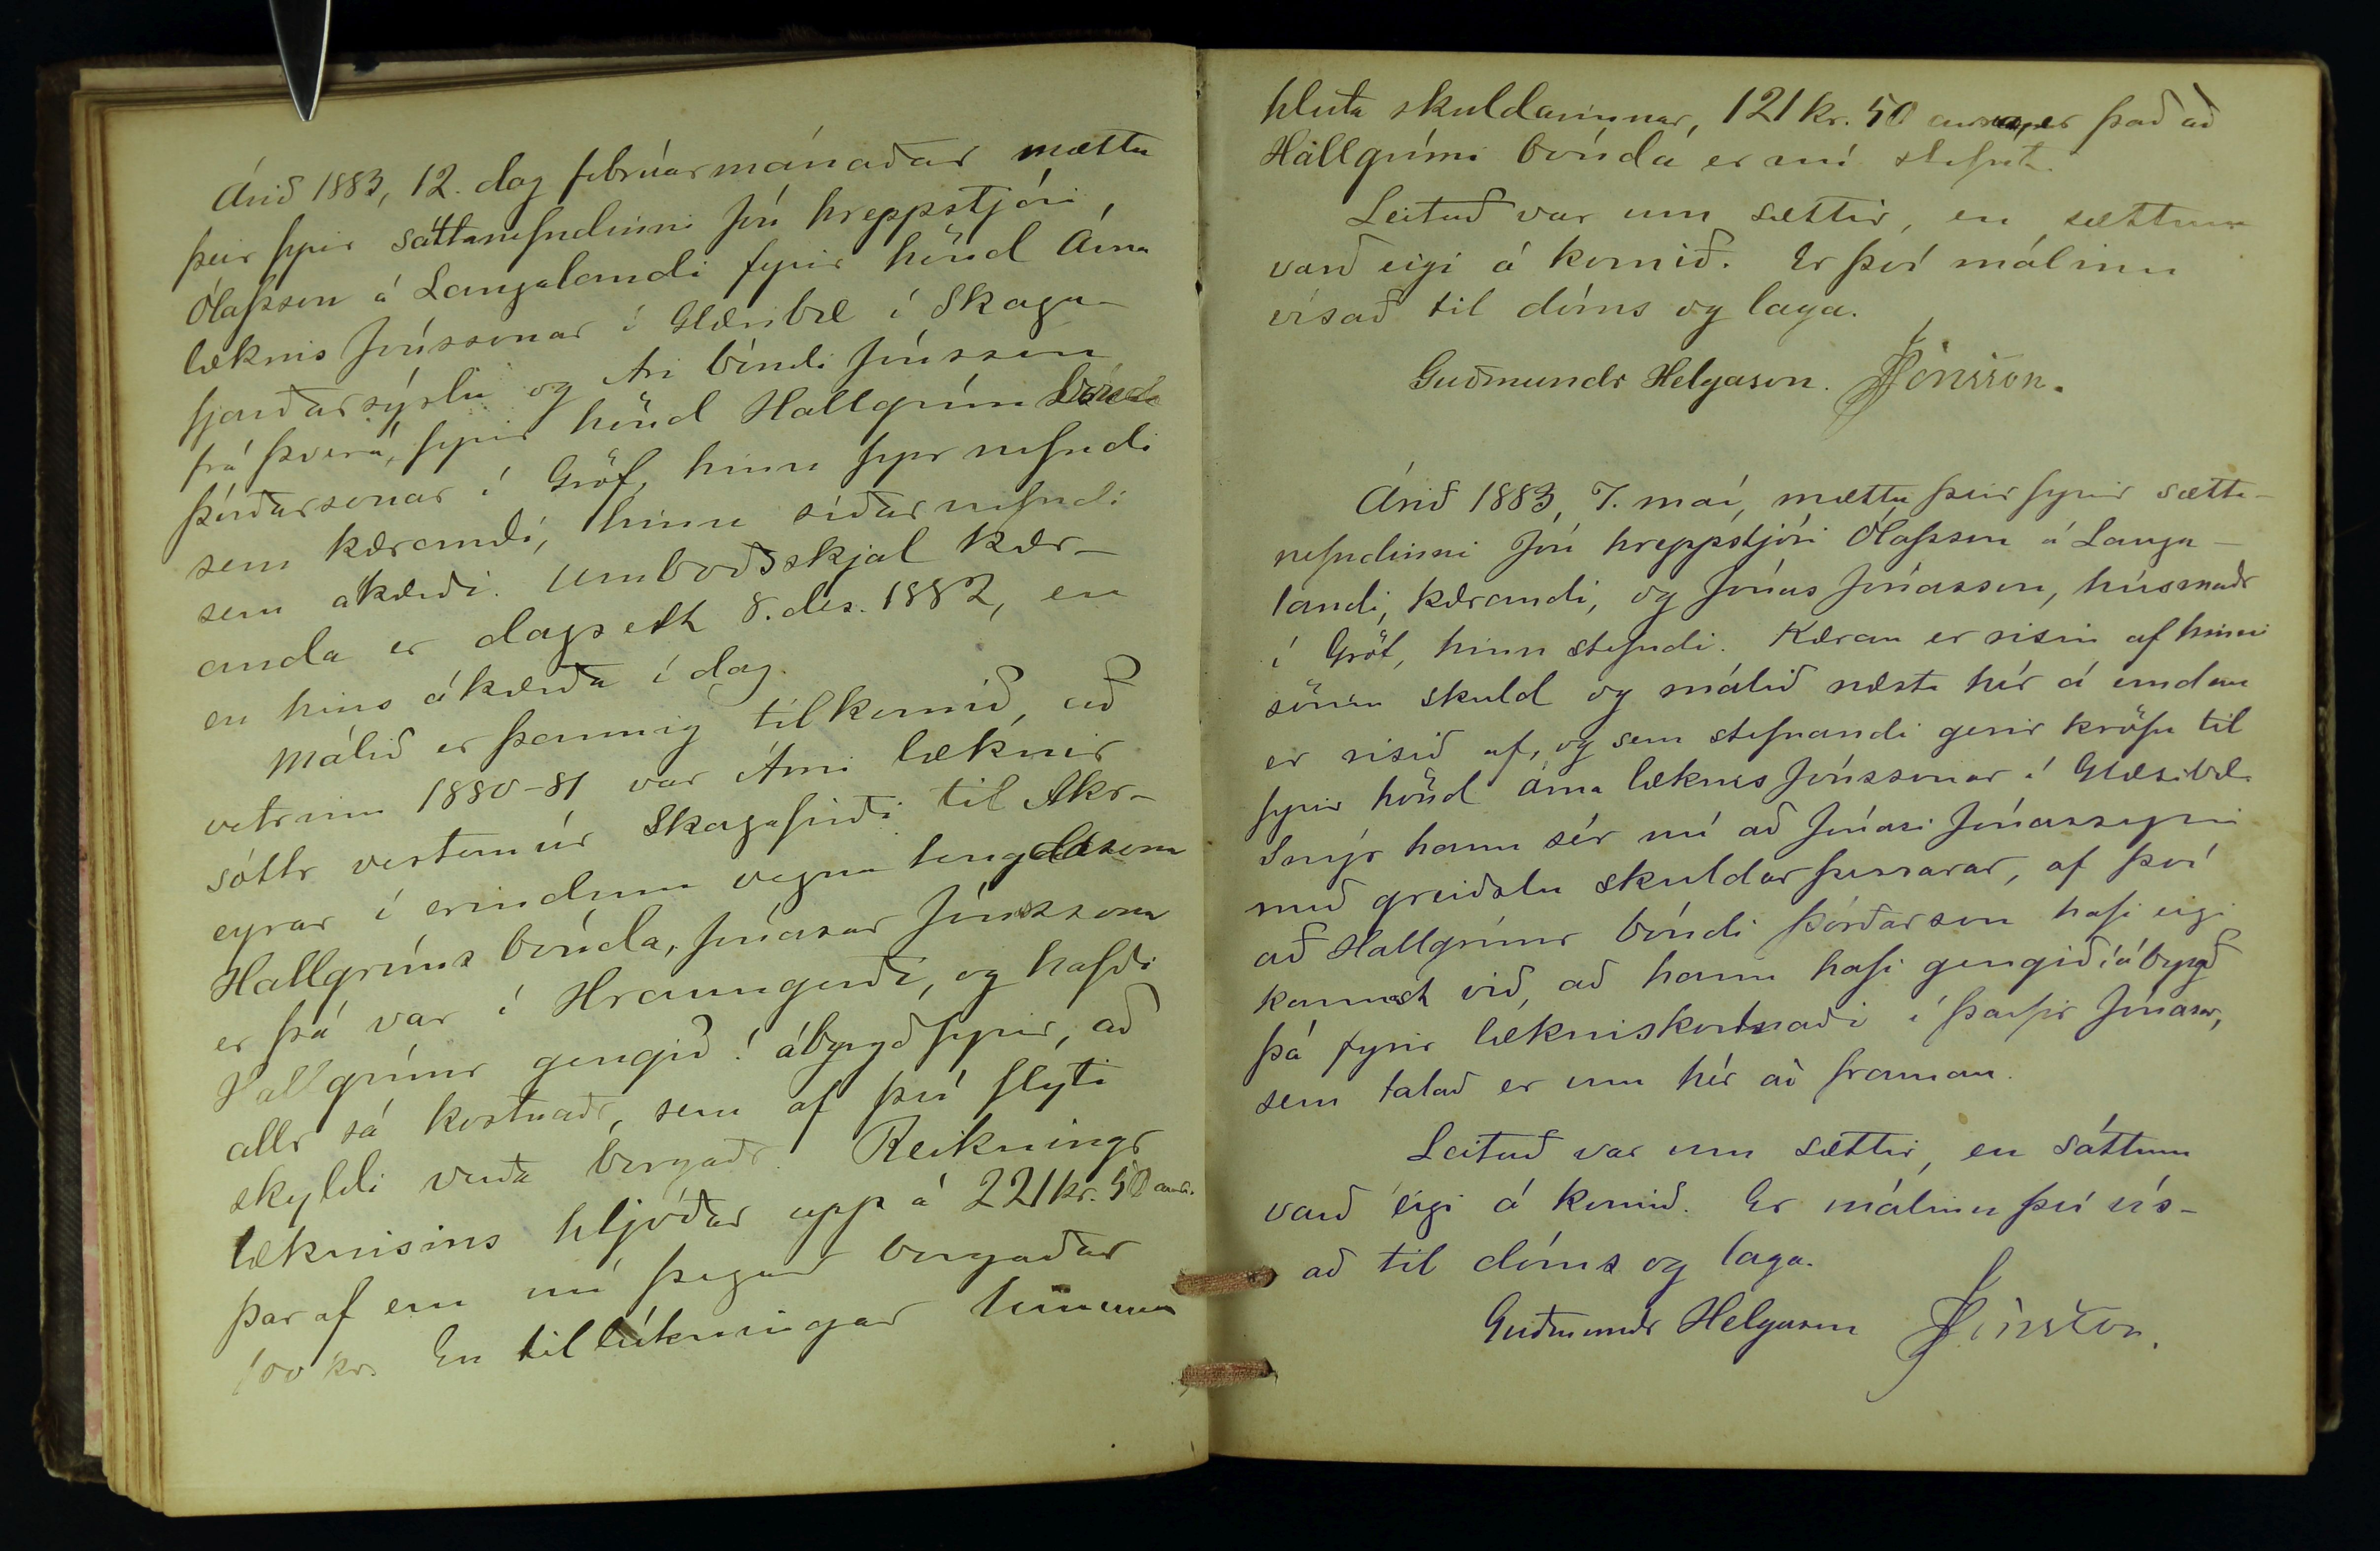 Árið 1883, 12. dag febrúarmánaðar mættu
þeir fyrir sáttanefndinni Jón hreppstjóri,
Ólafsson á Langalandi fyrir hönd Árna
læknis Jónssonar í Glæsibæ í Skaga-
fjarðarsýslu og Ari bóndi Jónsson
frá Þverá, fyrir hönd Hallgríms bónda
Þórðarsonar í Gröf, hinn fyr nefndi
sem kærandi, hinn síðar nefndi
sem ákærði. Umboðsskjal kær-
anda er dagsett 8. des. 1882, en
en hins ákærða í dag.
Málið er þannig tilkomið, að
vetrinn 1880-81 var Árni læknir
sóttr vestan úr Skagafirði til Akr-
eyrar í erindum vegna tengdasonar
Hallgríms bónda, Jónasar Jónssonar
er þá var í Hraungerði, og hafði
Hallgrímr gengið í ábyrgð fyrir, að
allr sá kostnaðr, sem af því flyti
skyldi verða borgaðr. Reikningr
læknisins hljóðar upp á 221 kr. 50 aura.
Þar af eru nú þegar borgaðar
100 kr. En til lúkningar hinum
hluta skuldarinnar, 121 kr. 50 aura, er það að
Hallgrími bónda er nú stefnt.
Leitað var um sættir, en sættum
varð eigi á komið. Er því málinu
vísað til dóms og laga.
Guðmundr Helgason. JJónsson.
Árið 1883, 7. maí, mættu þeir fyrir sætta-
nefndinni Jón hreppstjóri Ólafsson á Langa-
landi, kærandi, og Jónas Jónasson, húsmaðr
í Gröf, hinn stefndi. Kæran er risin af hinni
sömu skuld og málið næsta hér á undan
er risið af, og sem stefnandi gerir kröfu til
fyrir hönd Árna læknis Jónssonar í Glæsibæ.
Snýr hann sér nú að Jónasi Jónassyni
með greiðslu skuldar þessarar, af því
að Hallgrímr bóndi Þórðarson hafi eigi
kannast við, að hann hafi gengið í ábyrgð
þá fyrir lækniskostnaði í þarfir Jónasar,
sem talað er um hér að framan.
Leitað var um sættir, en sáttum
varð eigi á komið. Er málinu því vís-
að til dóms og laga.
Guðmundr Helgason JJónsson.